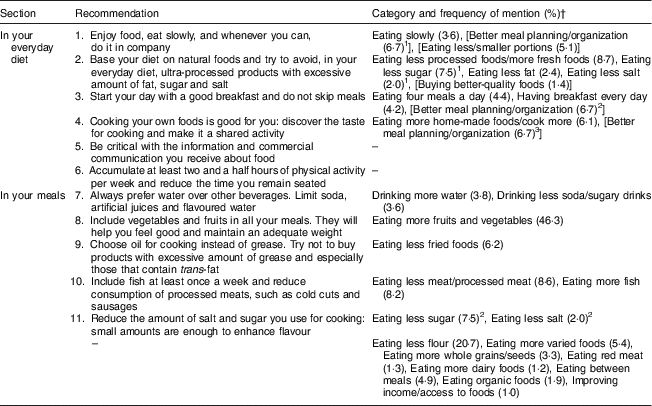 Section Recommendation Category and frequency of mention (%)†
In your everyday diet
1. Enjoy food, eat slowly, and whenever you can, do it in company
Eating slowly (3·6), [Better meal planning/organization (6·7)¹], [Eating less/smaller portions (5·1)]
2. Base your diet on natural foods and try to avoid, in your everyday diet, ultra-processed products with excessive amount of fat, sugar and salt
Eating less processed foods/more fresh foods (8·7), Eating less sugar (7·5)¹, Eating less fat (2·4), Eating less salt (2·0)¹, [Buying better-quality foods (1·4)]
3. Start your day with a good breakfast and do not skip meals
Eating four meals a day (4·4), Having breakfast every day (4·2), [Better meal planning/organization (6·7)²]
4. Cooking your own foods is good for you: discover the taste for cooking and make it a shared activity
Eating more home-made foods/cook more (6·1), [Better meal planning/organization (6·7)³]
5. Be critical with the information and commercial communication you receive about food
–
6. Accumulate at least two and a half hours of physical activity per week and reduce the time you remain seated
–
In your meals
7. Always prefer water over other beverages. Limit soda, artificial juices and flavoured water
Drinking more water (3·8), Drinking less soda/sugary drinks (3·6)
8. Include vegetables and fruits in all your meals. They will help you feel good and maintain an adequate weight
Eating more fruits and vegetables (46·3)
9. Choose oil for cooking instead of grease. Try not to buy products with excessive amount of grease and especially those that contain trans-fat
Eating less fried foods (6·2)
10. Include fish at least once a week and reduce consumption of processed meats, such as cold cuts and sausages
Eating less meat/processed meat (8·6), Eating more fish (8·2)
11. Reduce the amount of salt and sugar you use for cooking: small amounts are enough to enhance flavour
Eating less sugar (7·5)², Eating less salt (2·0)²
–
Eating less flour (20·7), Eating more varied foods (5·4), Eating more whole grains/seeds (3·3), Eating red meat (1·3), Eating more dairy foods (1·2), Eating between meals (4·9), Eating organic foods (1·9), Improving income/access to foods (1·0)